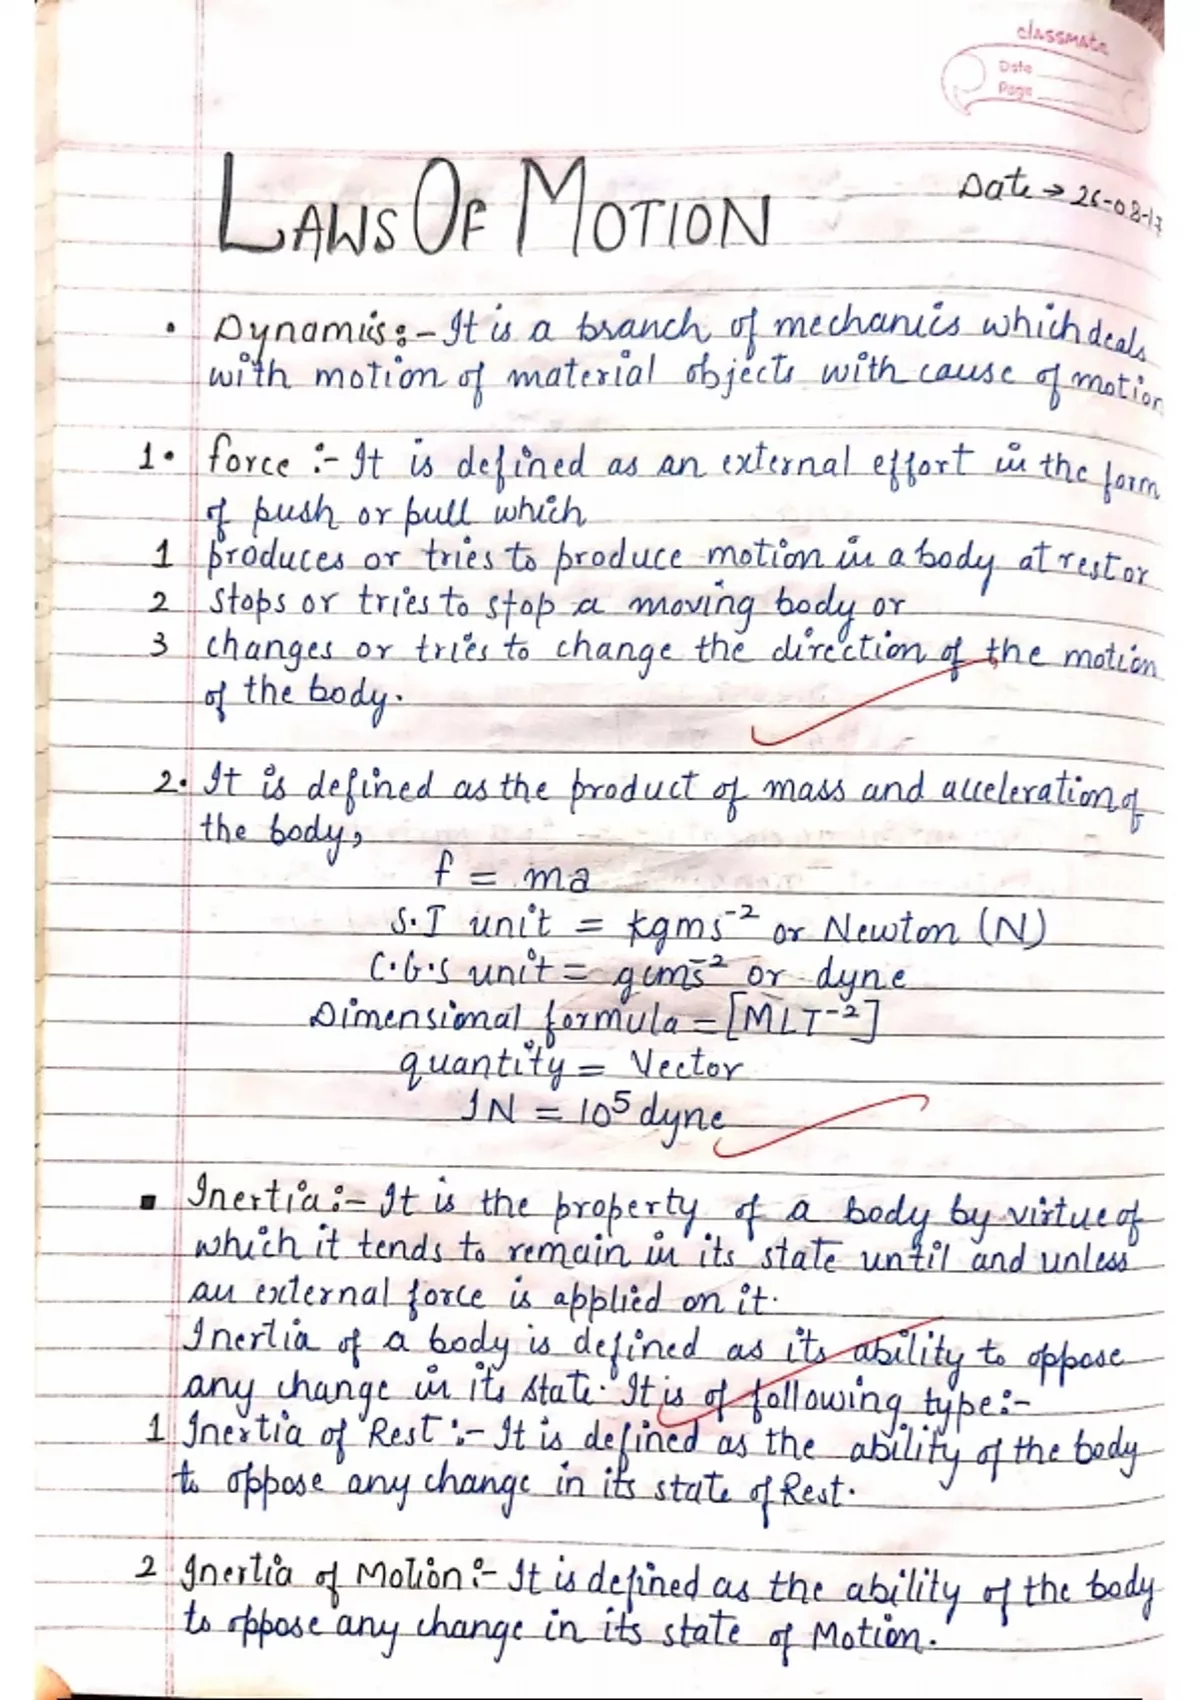 classmate
Date
Page
LAWS OF MOTION
Date → 26-08-17
• Dynamics:- It is a branch of mechanics which deals
with motion of material objects with cause of motion
1. force :- It is defined as an external effort in the form
of push or pull which
1 produces or tries to produce motion in a body at rest or
2 stops or tries to stop a moving body or
3 changes or tries to change the direction of the motion
of the body.
2. It is defined as the product of mass and acceleration of
the body,
f = ma
S.I unit = kgms⁻² or Newton (N)
C.G.S unit = gcms⁻² or dyne
Dimensional formula = [MLT⁻²]
quantity = Vector
1N = 10⁵ dyne
▪ Inertia :- It is the property of a body by virtue of
which it tends to remain in its state until and unless
an external force is applied on it.
Inertia of a body is defined as its ability to oppose
any change in its state. It is of following type:-
1 Inertia of Rest :- It is defined as the ability of the body
to oppose any change in its state of Rest.
2 Inertia of Motion :- It is defined as the ability of the body
to oppose any change in its state of Motion.